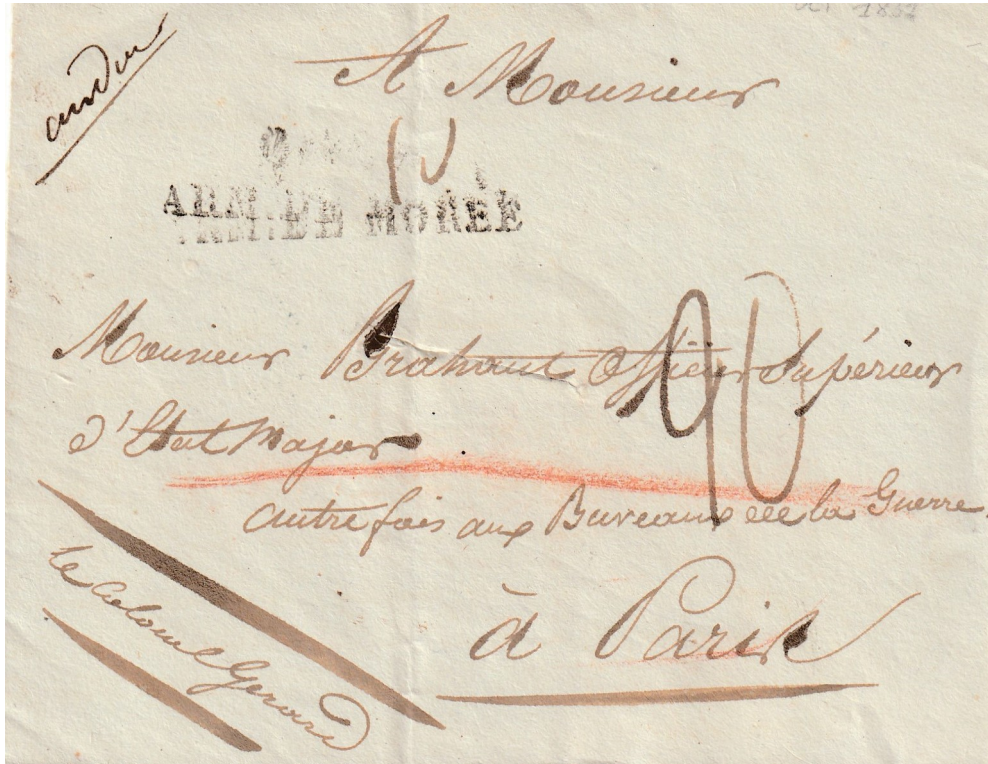 OCT 1832
A Monsieur
ARM. DE MOREE
Monsieur Brahaut Officier Supérieur
90
d'Etat Major
autrefois aux Bureaux de la Guerre
le Colonel Gerard
à Paris